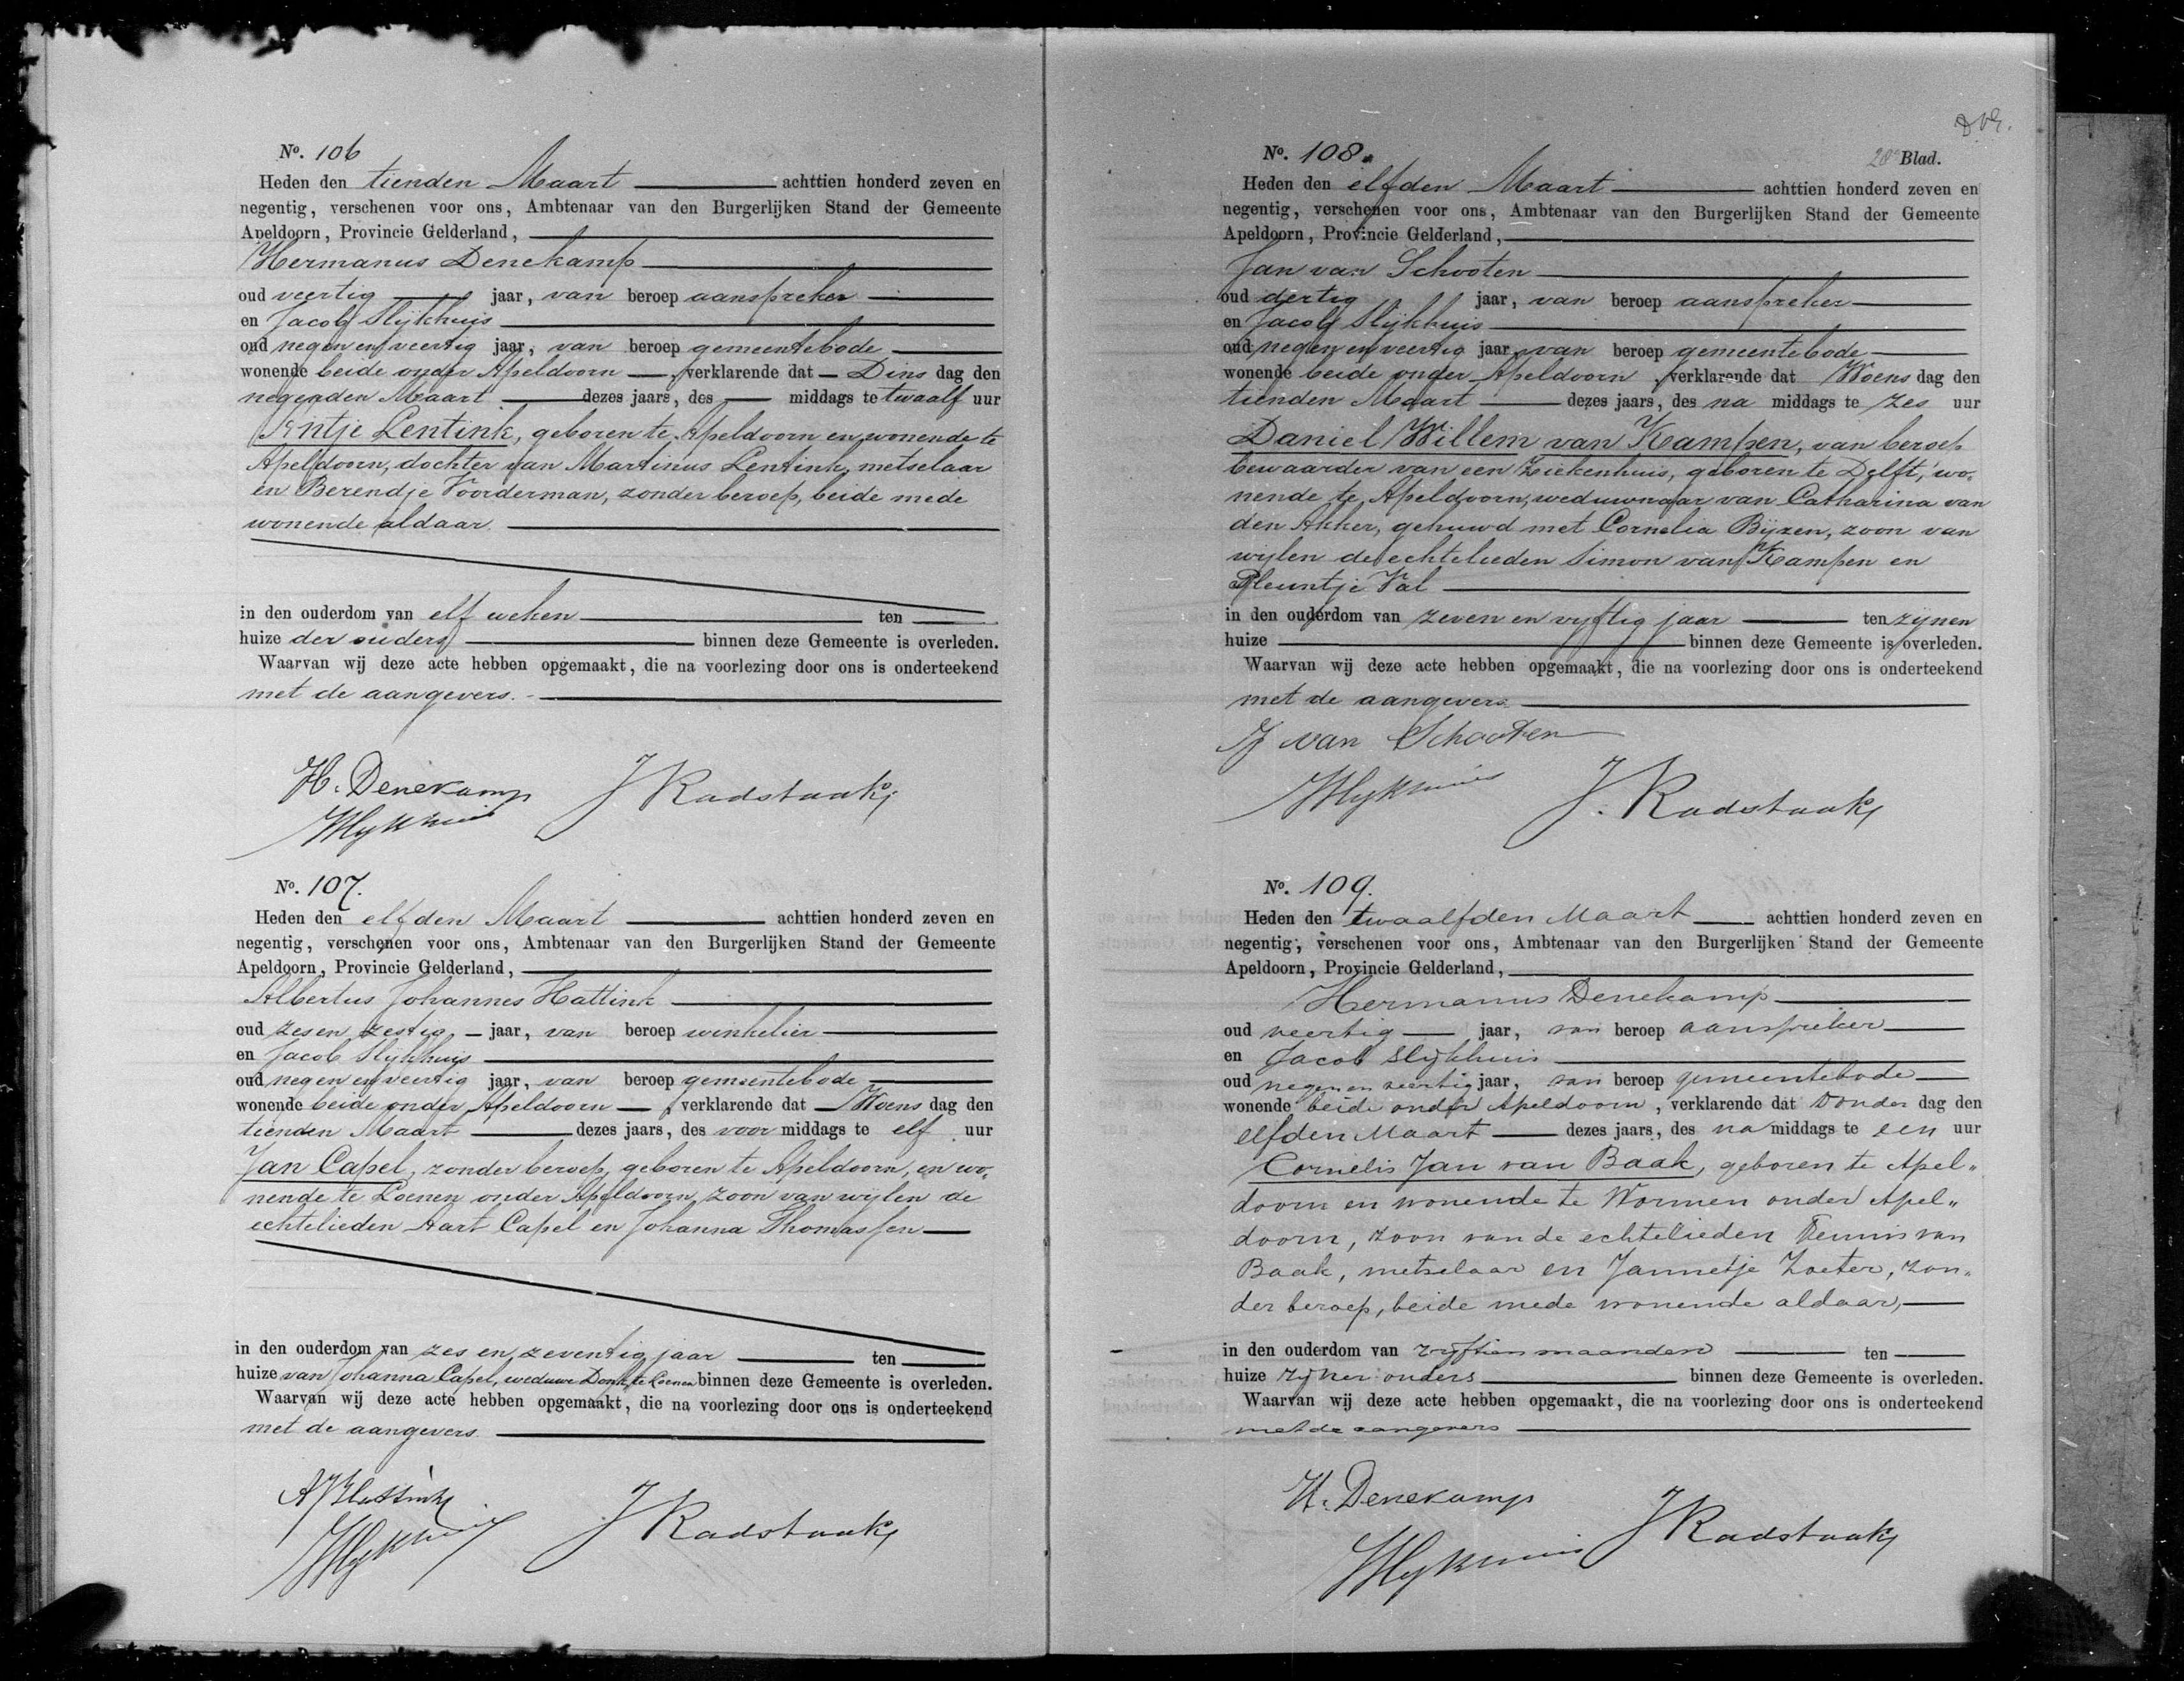 No. 106
Heden den tienden Maart achttien honderd zeven en
negentig, verschenen voor ons, Ambtenaar van den Burgerlijken Stand der Gemeente
Apeldoorn, Provincie Gelderland,
Hermanus Denekamp
oud veertig jaar, van beroep aanspreker
en Jacob Slijkhuis
oud negen en veertig jaar, van beroep gemeentebode
wonende beide onder Apeldoorn, verklarende dat Dins dag den
negenden Maart dezes jaars, des middags te twaalf uur
Entje Lentink, geboren te Apeldoorn en wonende te
Apeldoorn, dochter van Martinus Lentink, metselaar
en Berendje Voorderman, zonder beroep, beide mede
wonende aldaar.
in den ouderdom van elf weken ten
huize der ouders binnen deze Gemeente is overleden.
Waarvan wij deze acte hebben opgemaakt, die na voorlezing door ons is onderteekend
met de aangevers.
H. Denekamp J Radstaak
JSlijkhuis
No. 107.
Heden den elfden Maart achttien honderd zeven en
negentig, verschenen voor ons, Ambtenaar van den Burgerlijken Stand der Gemeente
Apeldoorn, Provincie Gelderland,
Albertus Johannes Hattink
oud zes en zestig jaar, van beroep winkelier
en Jacob Slijkhuis
oud negen en veertig jaar, van beroep gemeentebode
wonende beide onder Apeldoorn, verklarende dat Woens dag den
tienden Maart dezes jaars, des voor middags te elf uur
Jan Capel, zonder beroep, geboren te Apeldoorn, en wo-
nende te Loenen onder Apeldoorn, zoon van wijlen de
echtelieden Aart Capel en Johanna Thomassen
in den ouderdom van zes en zeventig jaar ten
huize van Johanna Capel, weduwe Donk, te Loenen binnen deze Gemeente is overleden.
Waarvan wij deze acte hebben opgemaakt, die na voorlezing door ons is onderteekend
met de aangevers.
AJHattink
JSlijkhuis J Radstaak
28e Blad.
No. 108.
Heden den elfden Maart achttien honderd zeven en
negentig, verschenen voor ons, Ambtenaar van den Burgerlijken Stand der Gemeente
Apeldoorn, Provincie Gelderland,
Jan van Schooten
oud dertig jaar, van beroep aanspreker
en Jacob Slijkhuis
oud negen en veertig jaar, van beroep gemeentebode
wonende beide onder Apeldoorn, verklarende dat Woens dag den
tienden Maart dezes jaars, des na middags te zes uur
Daniel Willem van Kampen, van beroep
bewaarder van een Ziekenhuis, geboren te Delft, wo-
nende te Apeldoorn, weduwnaar van Catharina van
den Akker, gehuwd met Cornelia Bijzen, zoon van
wijlen de echtelieden Simon van Kampen en
Pleuntje Val
in den ouderdom van zeven en vijftig jaar ten zijnen
huize binnen deze Gemeente is overleden.
Waarvan wij deze acte hebben opgemaakt, die na voorlezing door ons is onderteekend
met de aangevers.
J van Schooten
JSlijkhuis J. Radstaak
No. 109.
Heden den twaalfden Maart achttien honderd zeven en
negentig, verschenen voor ons, Ambtenaar van den Burgerlijken Stand der Gemeente
Apeldoorn, Provincie Gelderland,
Hermanus Denekamp
oud veertig jaar, van beroep aanspreker
en Jacob Slijkhuis
oud negen en veertig jaar, van beroep gemeentebode
wonende beide onder Apeldoorn, verklarende dat Donder dag den
elfden Maart dezes jaars, des na middags te een uur
Cornelis Jan van Baak, geboren te Apel-
doorn en wonende te Wormen onder Apel-
doorn, zoon van de echtelieden Teunis van
Baak, metselaar en Jannetje Zoeter, zon-
der beroep, beide mede wonende aldaar,
in den ouderdom van vijftien maanden ten
huize zijner ouders binnen deze Gemeente is overleden.
Waarvan wij deze acte hebben opgemaakt, die na voorlezing door ons is onderteekend
met de aangevers
H. Denekamp
JSlijkhuis J Radstaak